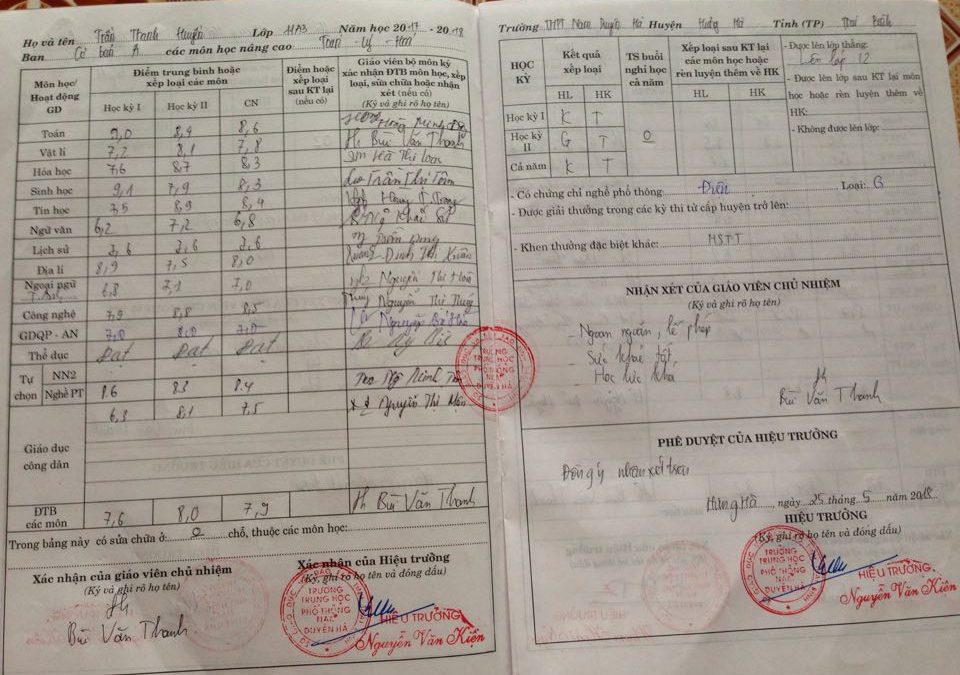 Họ và tên Trần Thanh Huyền Lớp 11A3 Năm học 2017 - 2018
Ban Cơ bản A các môn học nâng cao Toán - Lý - Hoá
Môn học/ Hoạt động GD
Điểm trung bình hoặc xếp loại các môn
Học kỳ I Học kỳ II CN
Điểm hoặc xếp loại sau KT lại (nếu có)
Giáo viên bộ môn ký xác nhận ĐTB môn học, xếp loại, sửa chữa hoặc nhận xét (nếu có)
(Ký và ghi rõ họ tên)
Toán 8,9 8,6
Vật lí 7,2 8,1 7,8 Bùi Văn Thanh
Hóa học 7,6 8,7 8,3 Hà Thị Loan
Sinh học 9,1 7,9 8,3 Trần Thị
Tin học 7,5 8,9 8,4
Ngữ văn 6,2 7,2 6,8
Lịch sử 7,6 7,6 7,6
Địa lí 8,9 7,5 8,0
Ngoại ngữ 6,8 7,1 7,0 Nguyễn Thị
Công nghệ 7,9 8,8 8,5 Nguyễn Thị
GDQP - AN 7,0 8,0 7,0 Nguyễn
Thể dục Đạt Đạt Đạt
Tự chọn
NN2
Nghề PT 8.6 8.3 8.4
Giáo dục công dân 6,3 8,1 7,5 Nguyễn Thị
ĐTB các môn 7,6 8,0 7,9 Bùi Văn Thanh
Trong bảng này có sửa chữa ở: 0 chỗ, thuộc các môn học:
Xác nhận của giáo viên chủ nhiệm
(Ký và ghi rõ họ tên)
Bùi Văn Thanh
Xác nhận của Hiệu trưởng
(Ký, ghi rõ họ tên và đóng dấu)
TRƯỜNG
TRUNG HỌC
PHỔ THÔNG
NAM
DUYÊN HÀ
HIỆU TRƯỞNG
Nguyễn Văn Kiện
Trường THPT Nam Duyên Hà Huyện Hưng Hà Tỉnh (TP) Thái Bình
HỌC KỲ
Kết quả xếp loại
HL HK
TS buổi nghỉ học cả năm
Xếp loại sau KT lại các môn học hoặc rèn luyện thêm về HK
HL HK
Học kỳ I K T
Học kỳ II G T 0
Cả năm K T
- Được lên lớp thẳng:
Lên lớp 12
- Được lên lớp sau KT lại môn học hoặc rèn luyện thêm về HK:
- Không được lên lớp:
- Có chứng chỉ nghề phổ thông: Điện Loại: G
- Được giải thưởng trong các kỳ thi từ cấp huyện trở lên:
- Khen thưởng đặc biệt khác: HSTT
NHẬN XÉT CỦA GIÁO VIÊN CHỦ NHIỆM
(Ký và ghi rõ họ tên)
- Ngoan ngoãn, lễ phép
Sức khoẻ tốt,
Học lực khá
Bùi Văn Thanh
TRƯỜNG
TRUNG HỌC
PHỔ THÔNG
NAM
DUYÊN HÀ
PHÊ DUYỆT CỦA HIỆU TRƯỞNG
Đồng ý nhận xét trên
Hưng Hà, ngày 25 tháng 5 năm 2018
HIỆU TRƯỞNG
(Ký, ghi rõ họ tên và đóng dấu)
TRƯỜNG
TRUNG HỌC
PHỔ THÔNG
NAM
DUYÊN HÀ
HIỆU TRƯỞNG
Nguyễn Văn Kiện